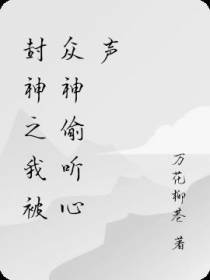 封神之我被
众神偷听心
声
万花柳巷 著